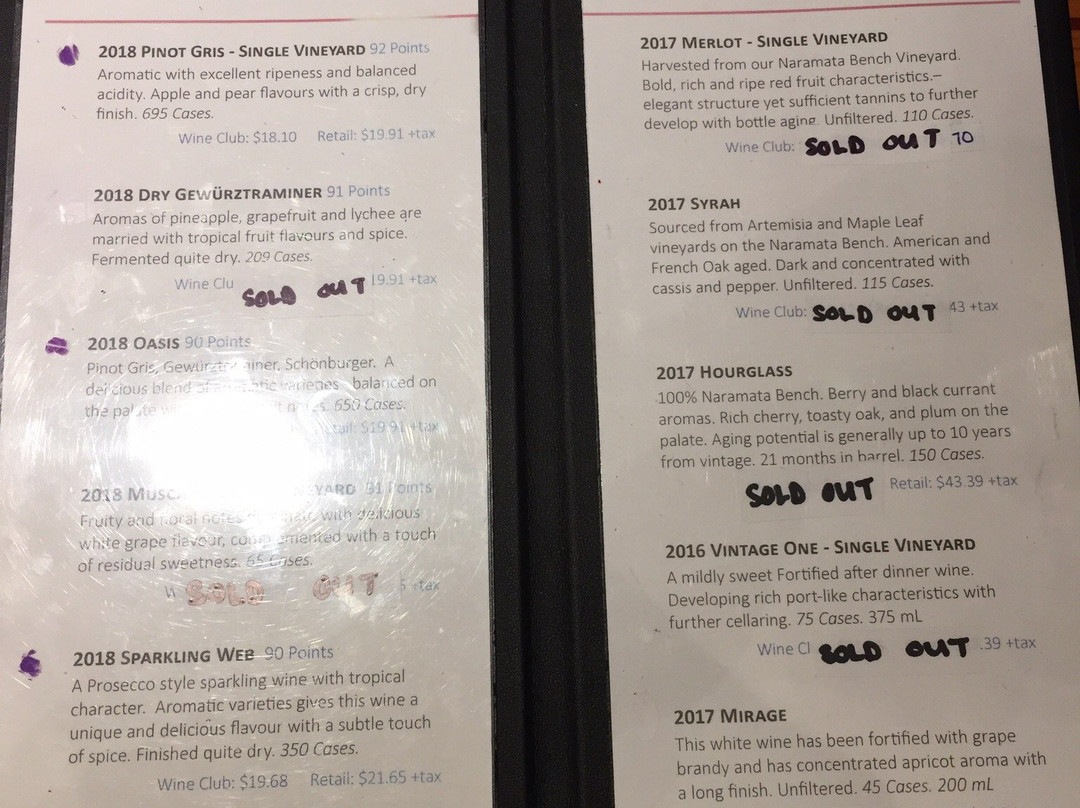 2018 PINOT GRIS - SINGLE VINEYARD 92 Points
Aromatic with excellent ripeness and balanced
acidity. Apple and pear flavours with a crisp, dry
finish. 695 Cases.
Wine Club: $18.10 Retail: $19.91 +tax
2018 DRY GEWÜRZTRAMINER 91 Points
Aromas of pineapple, grapefruit and lychee are
married with tropical fruit flavours and spice.
Fermented quite dry. 209 Cases.
Wine Clu SOLD OUT 19.91 +tax
2018 OASIS 90 Points
Pinot Gris, Gewürztraminer, Schönburger. A
delicious blend of aromatic varieties balanced on
the palate 650 Cases.
$19.91 +tax
2018 91 Points
Fruity and floral notes with delicious
white grape flavour, complemented with a touch
of residual sweetness. 65 Cases.
SOLD OUT 5 +tax
2018 SPARKLING WEB 90 Points
A Prosecco style sparkling wine with tropical
character. Aromatic varieties gives this wine a
unique and delicious flavour with a subtle touch
of spice. Finished quite dry. 350 Cases.
Wine Club: $19.68 Retail: $21.65 +tax
2017 MERLOT - SINGLE VINEYARD
Harvested from our Naramata Bench Vineyard.
Bold, rich and ripe red fruit characteristics.–
elegant structure yet sufficient tannins to further
develop with bottle aging. Unfiltered. 110 Cases.
Wine Club: SOLD OUT 70
2017 SYRAH
Sourced from Artemisia and Maple Leaf
vineyards on the Naramata Bench. American and
French Oak aged. Dark and concentrated with
cassis and pepper. Unfiltered. 115 Cases.
Wine Club: SOLD OUT 43 +tax
2017 HOURGLASS
100% Naramata Bench. Berry and black currant
aromas. Rich cherry, toasty oak, and plum on the
palate. Aging potential is generally up to 10 years
from vintage. 21 months in barrel. 150 Cases.
SOLD OUT Retail: $43.39 +tax
2016 VINTAGE ONE - SINGLE VINEYARD
A mildly sweet Fortified after dinner wine.
Developing rich port-like characteristics with
further cellaring. 75 Cases. 375 mL
Wine Cl SOLD OUT .39 +tax
2017 MIRAGE
This white wine has been fortified with grape
brandy and has concentrated apricot aroma with
a long finish. Unfiltered. 45 Cases. 200 mL